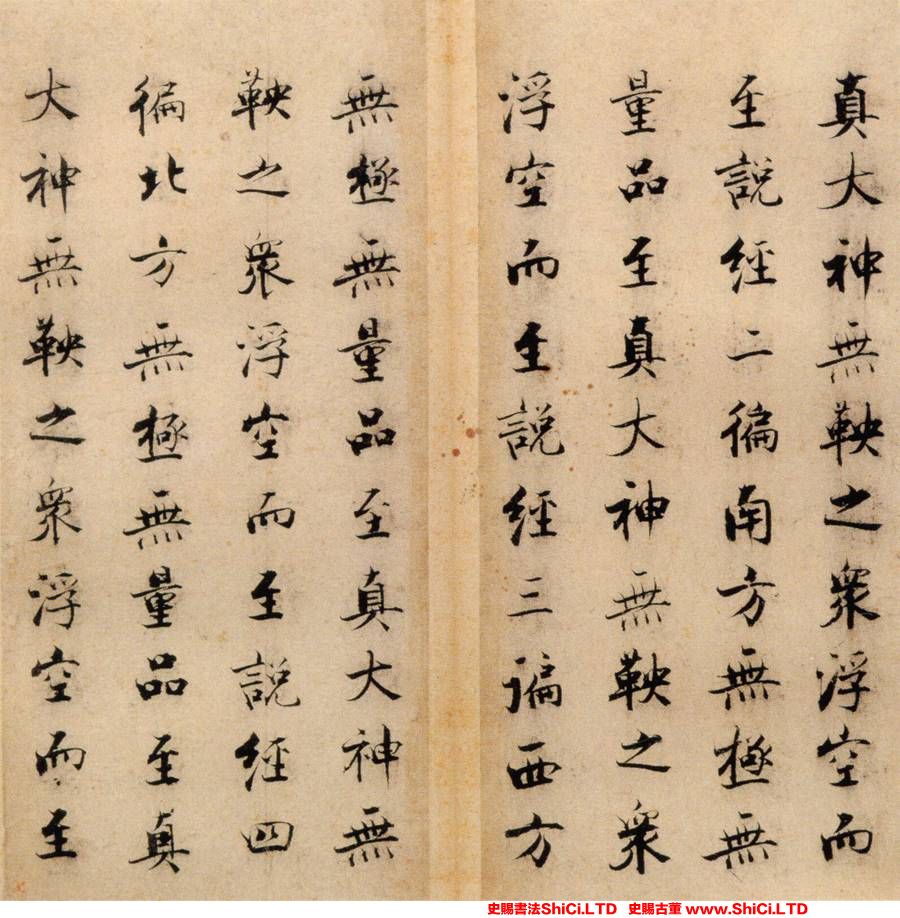 真大神無鞅之衆浮空而
至説經二徧南方無極無
量品至真大神無鞅之衆
浮空而至説經三諞西方
無極無量品至真大神無
鞅之衆浮空而至説經四
徧北方無極無量品至真
大神無鞅之衆浮空而至
史賜書法ShiCi.LTD 史賜古董 www.ShiCi.LTD